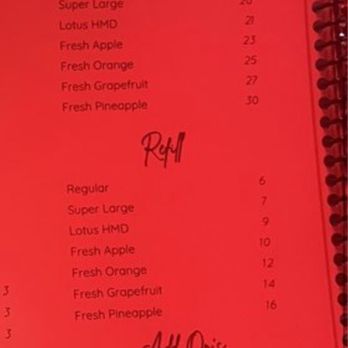 Super Large 20
Lotus HMD 21
Fresh Apple 23
Fresh Orange 25
Fresh Grapefruit 27
Fresh Pineapple 30
Refill
Regular 6
Super Large 7
Lotus HMD 9
Fresh Apple 10
Fresh Orange 12
3 Fresh Grapefruit 14
3 Fresh Pineapple 16
3
Add